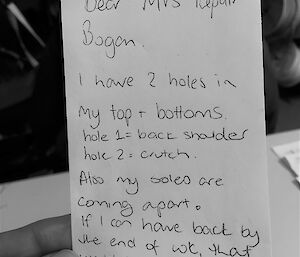 Dear Mrs Repair
Bogan.
I have 2 holes in
my top + bottoms.
hole 1 = back shoulder
hole 2 = crutch.
Also my soles are
coming apart.
If I can have back by
the end of wk, that